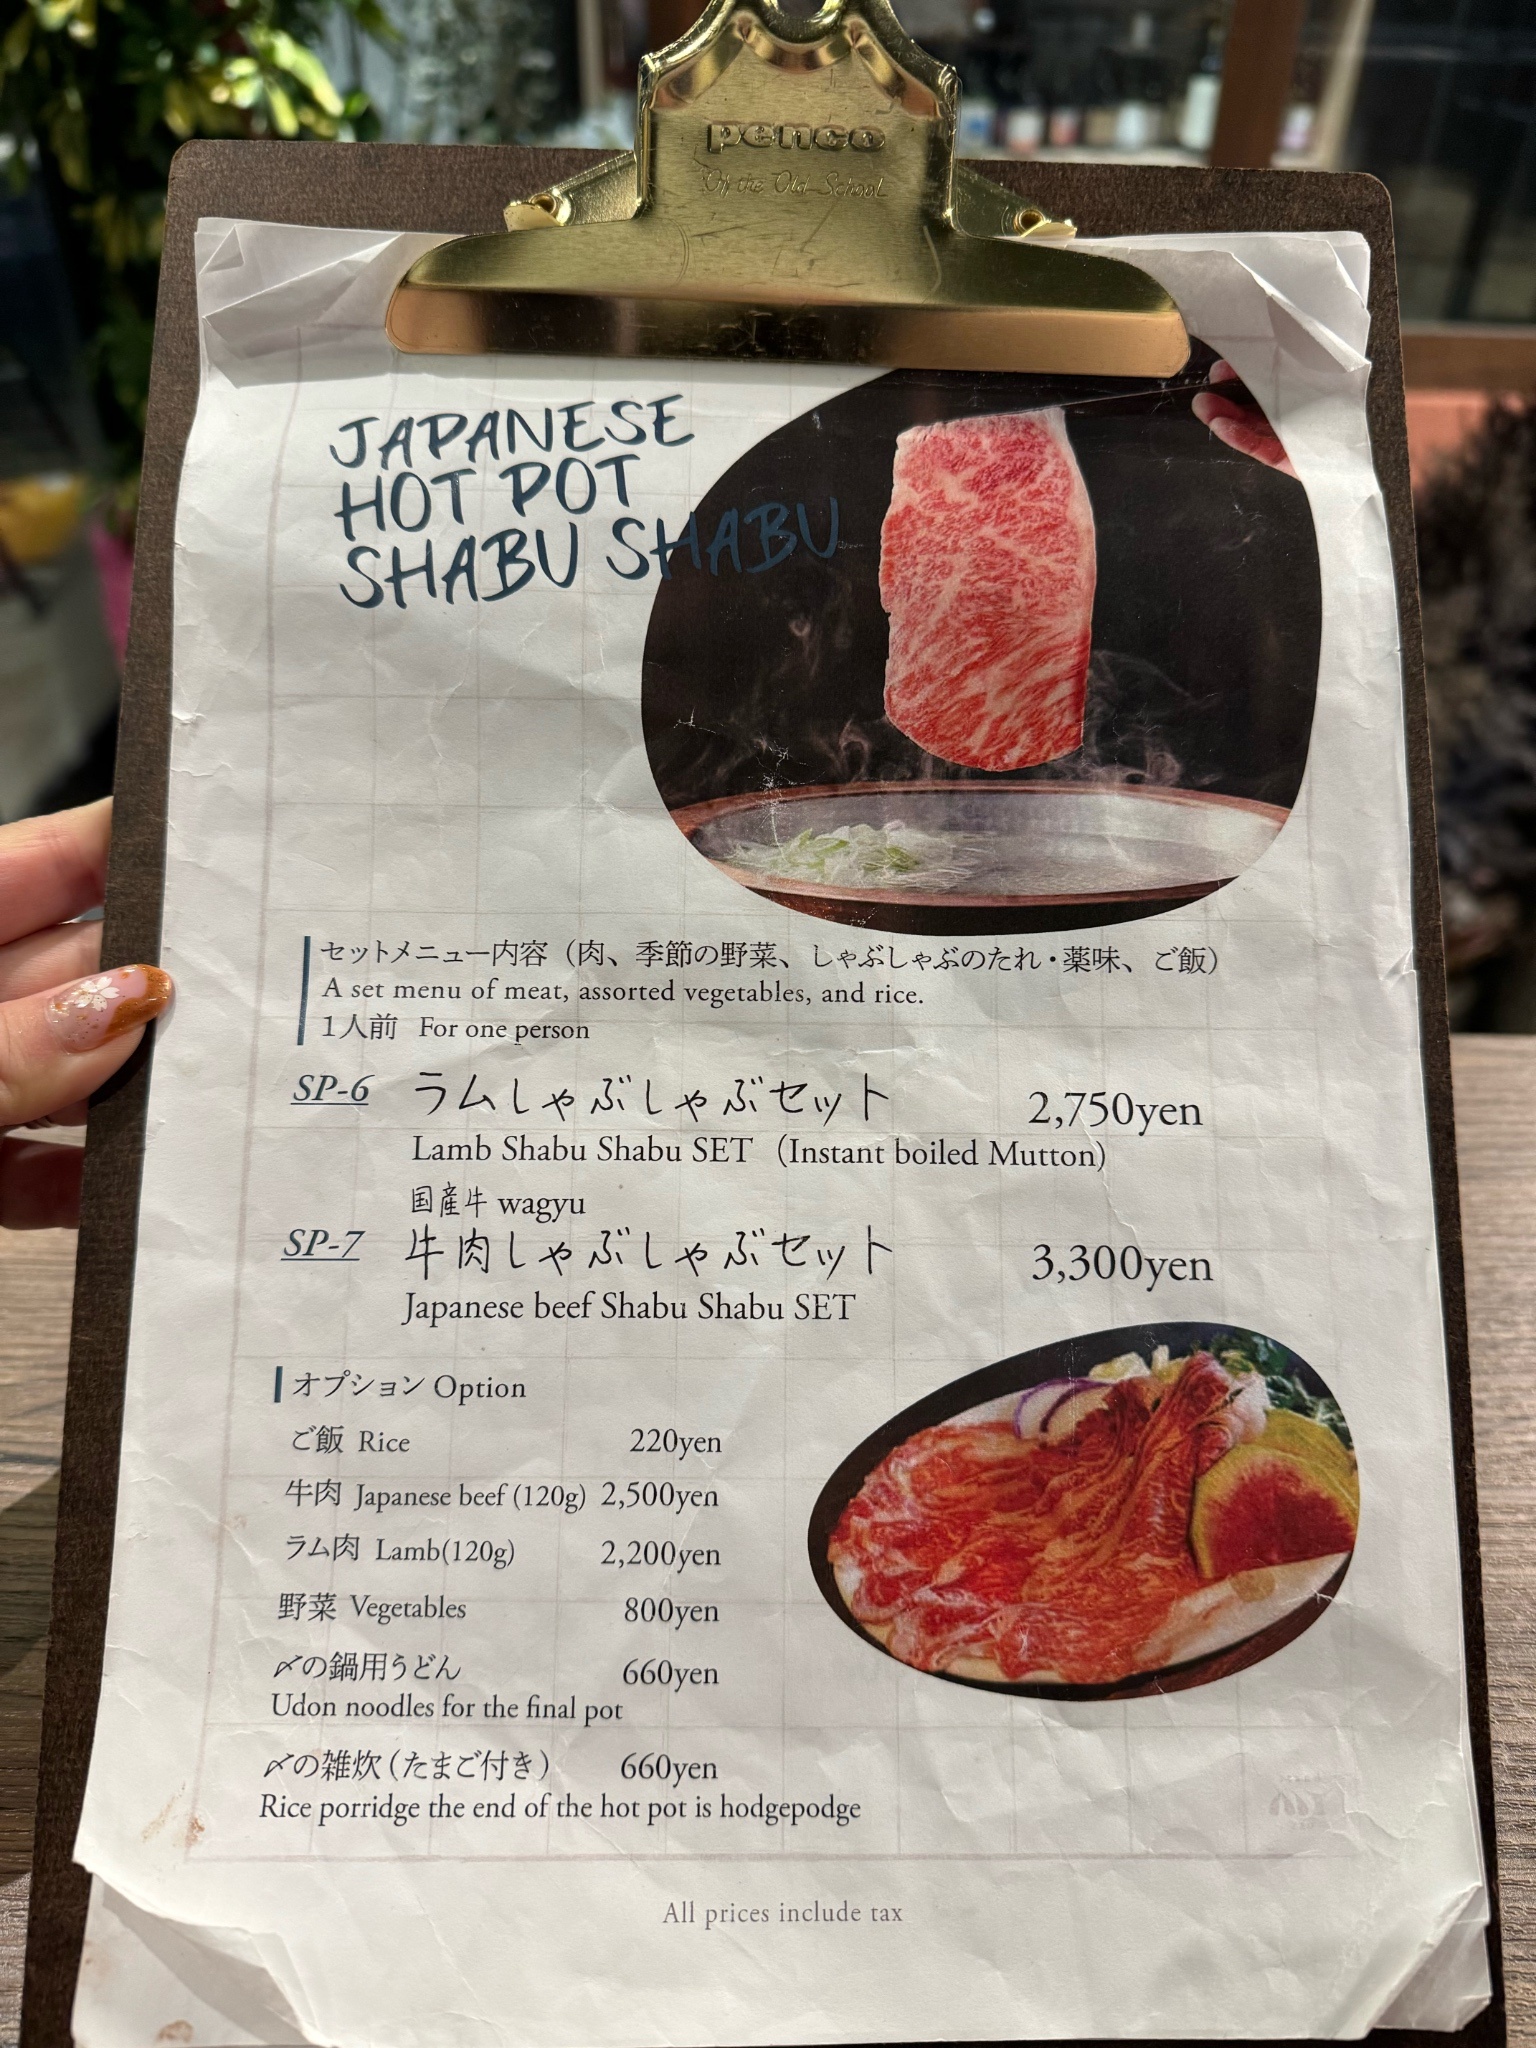 penco
Of the Old School
JAPANESE
HOT POT
SHABU SHABU
セットメニュー内容（肉、季節の野菜、しゃぶしゃぶのたれ・薬味、ご飯）
A set menu of meat, assorted vegetables, and rice.
1人前 For one person
SP-6 ラムしゃぶしゃぶセット 2,750yen
Lamb Shabu Shabu SET（Instant boiled Mutton)
国産牛 wagyu
SP-7 牛肉しゃぶしゃぶセット 3,300yen
Japanese beef Shabu Shabu SET
オプション Option
ご飯 Rice 220yen
牛肉 Japanese beef (120g) 2,500yen
ラム肉 Lamb(120g) 2,200yen
野菜 Vegetables 800yen
〆の鍋用うどん 660yen
Udon noodles for the final pot
〆の雑炊（たまご付き） 660yen
Rice porridge the end of the hot pot is hodgepodge
All prices include tax